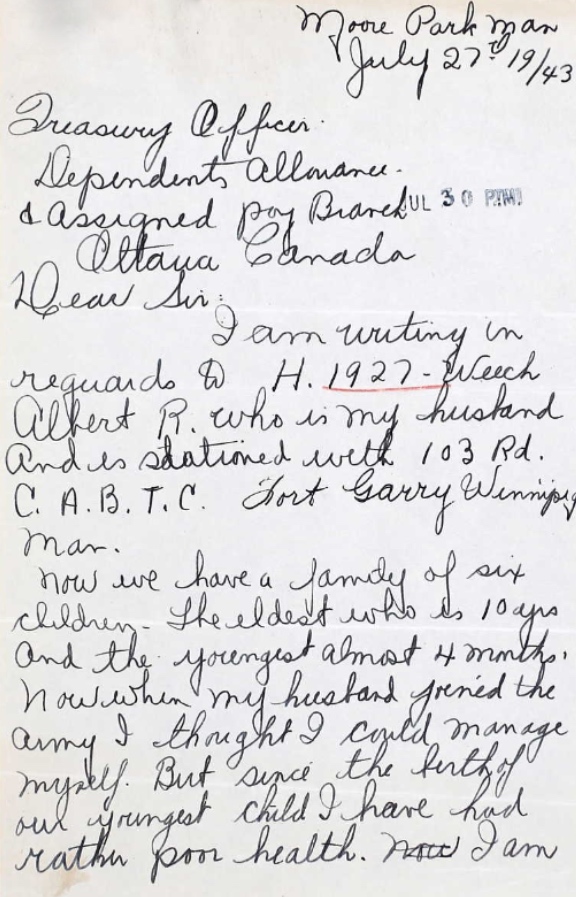 Moore Park Man
July 27th 19/43
Treasury Officer.
Dependents Allowance.
& Assigned pay Branch
JUL 30 P.M.
Ottawa Canada
Dear Sir:
I am writing in
reguards to H. 1927 - Weech
Albert R. who is my husband
And is stationed with 103 Rd.
C. A. B. T. C. Fort Garry Winnipeg
Man.
Now we have a family of six
children. The eldest who is 10 yrs
And the youngest almost 4 months.
Now when my husband joined the
army I thought I could manage
myself. But since the birth of
our youngest child I have had
rather poor health. Now I am